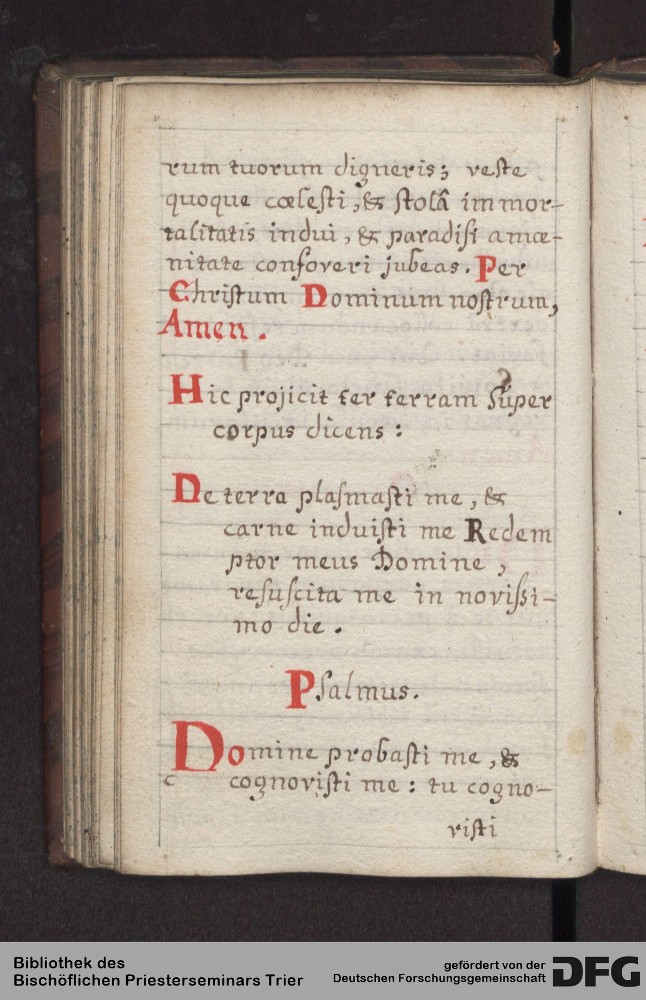 rum tuorum digneris; veste
quoque cœlesti, & stolâ immor-
talitatis indui, & paradisi amœ-
nitate confoveri jubeas. Per
Christum Dominum nostrum,
Amen.
Hic projicit ter terram super
corpus dicens:
De terra plasmasti me, &
carne induisti me Redem
ptor meus Domine,
resuscita me in novissi-
mo die.
Psalmus.
Domine probasti me, &
cognovisti me: tu cogno-
visti
Bibliothek des
Bischöflichen Priesterseminars Trier
gefördert von der
Deutschen Forschungsgemeinschaft
DFG